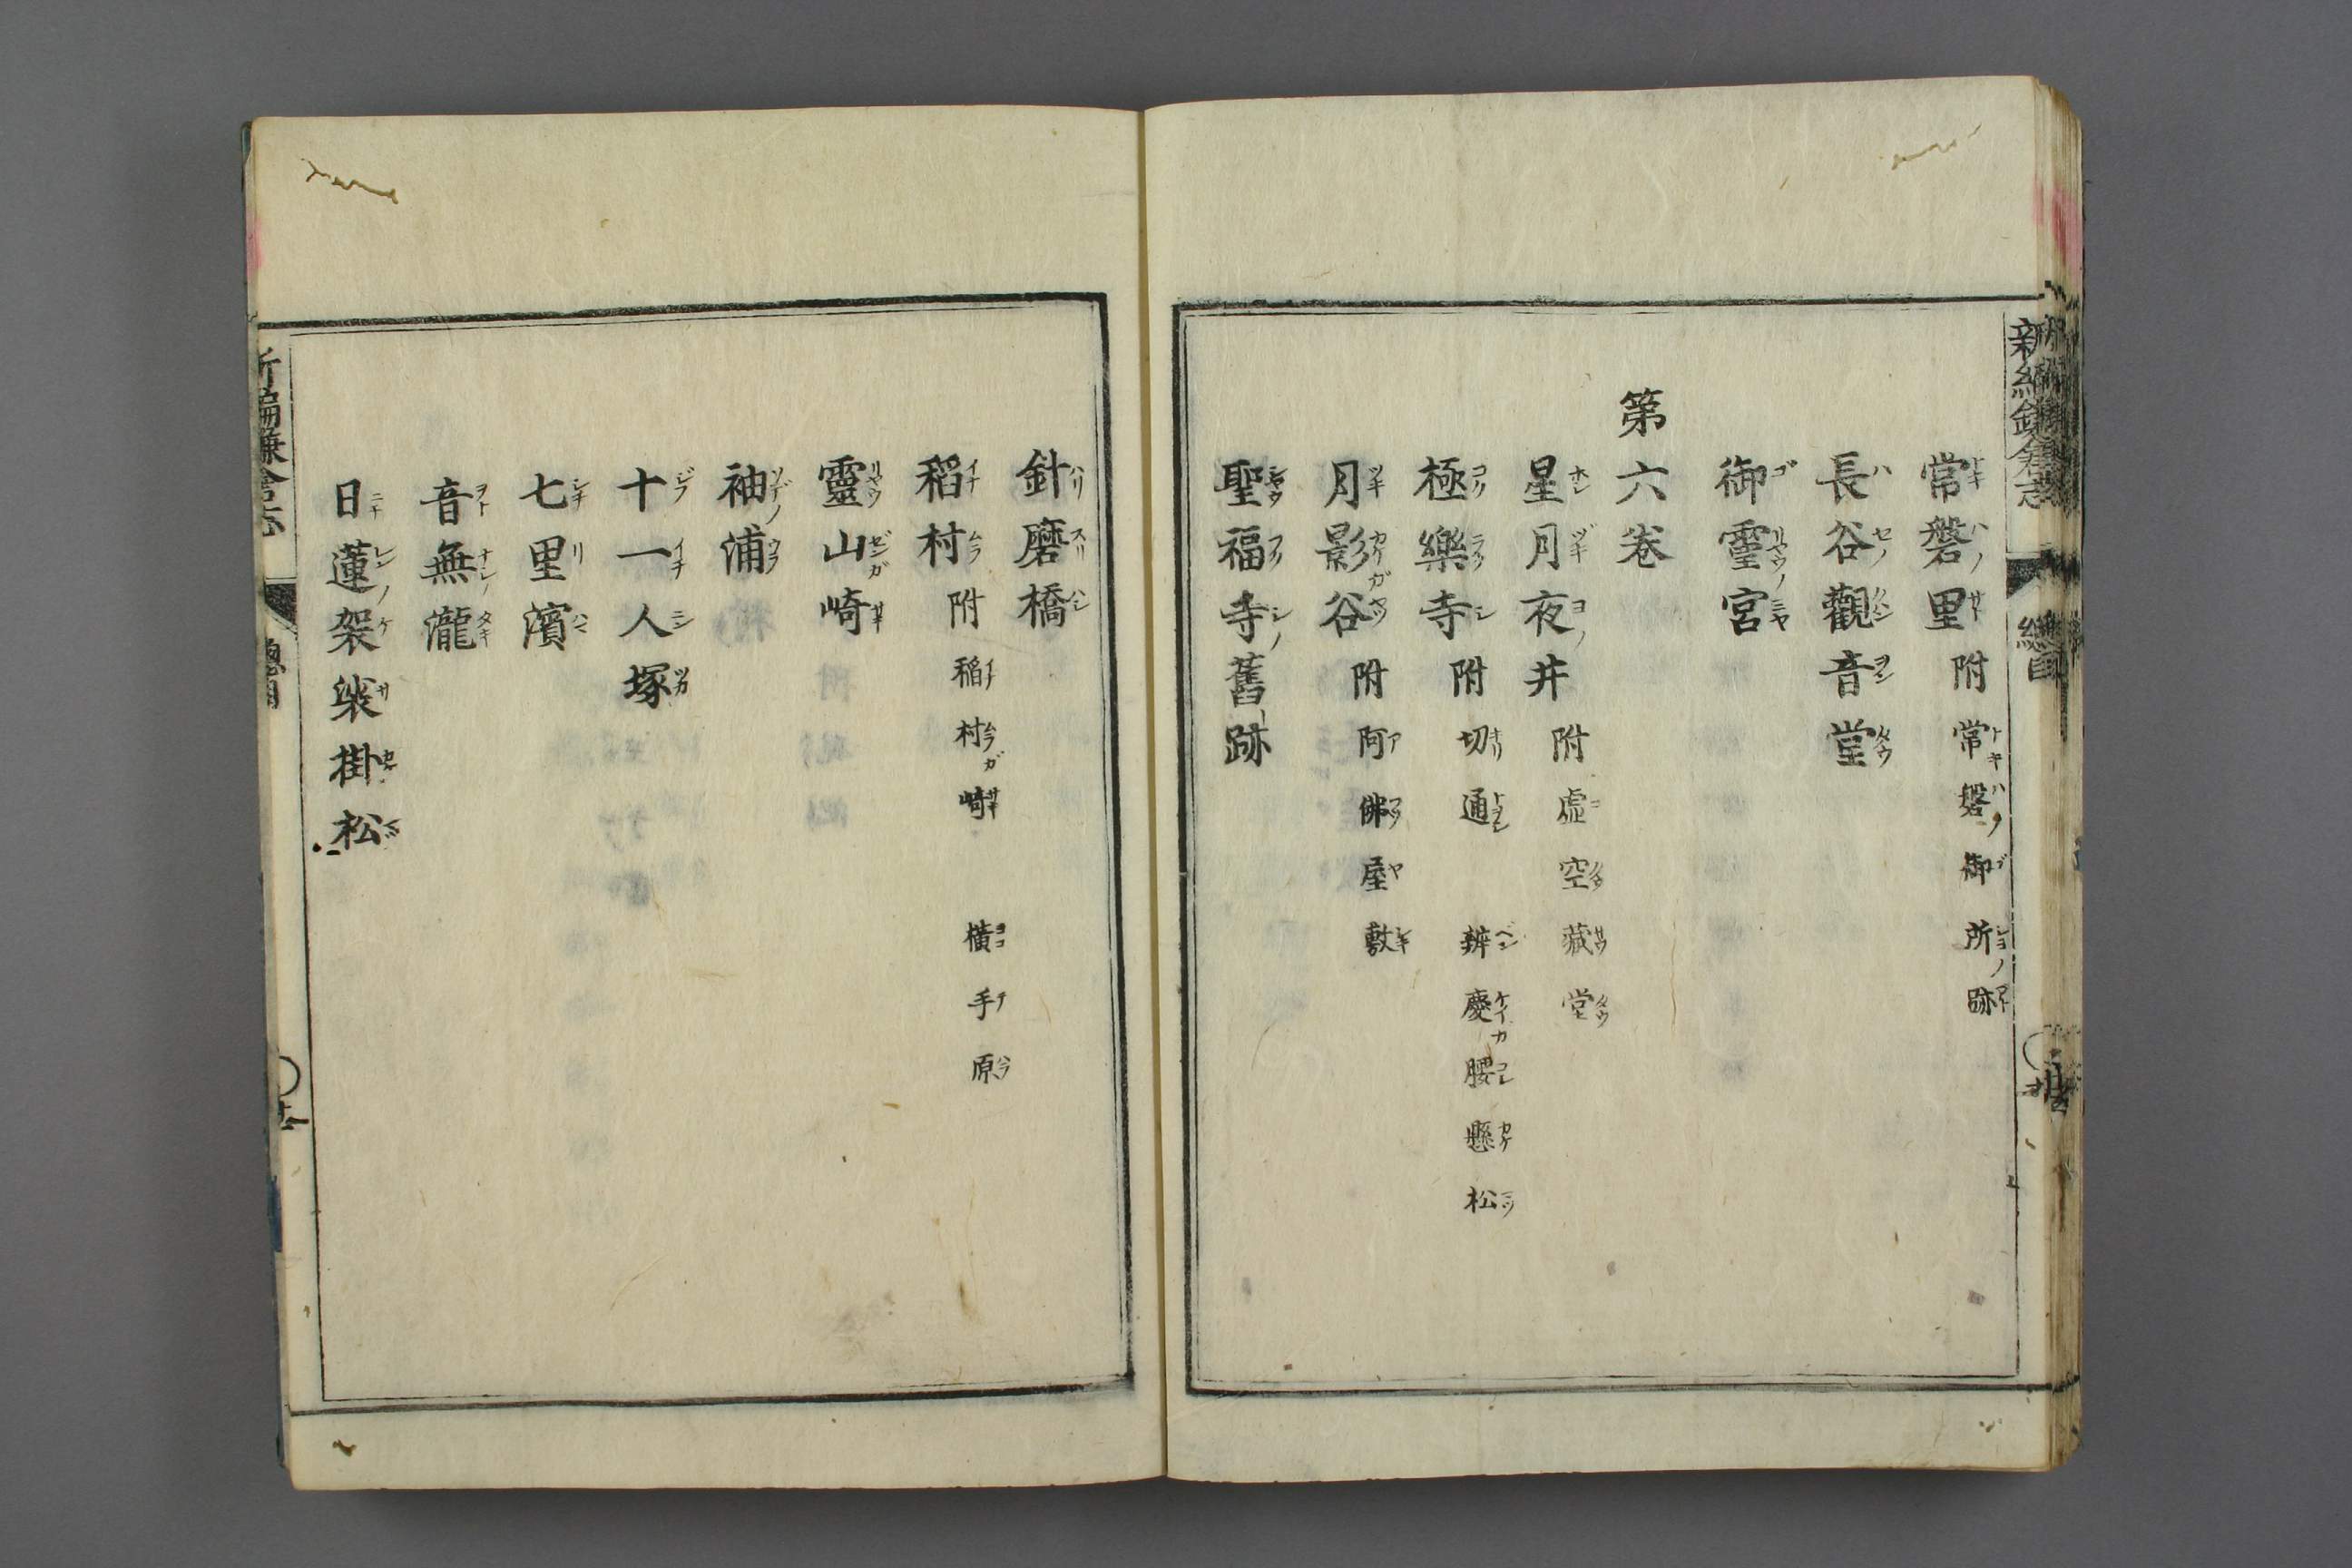 常磐里 附 常磐御所跡
長谷觀音堂
御靈宮
第六卷
星月夜井 附 虛空藏堂
極樂寺 附 切通 辨慶腰懸松
月影谷 附 阿佛屋敷
聖福寺舊跡
針磨橋
稻村 附 稻村崎 橫手原
靈山崎
袖浦
十一人塚
七里濱
音無瀧
日蓮袈裟掛松